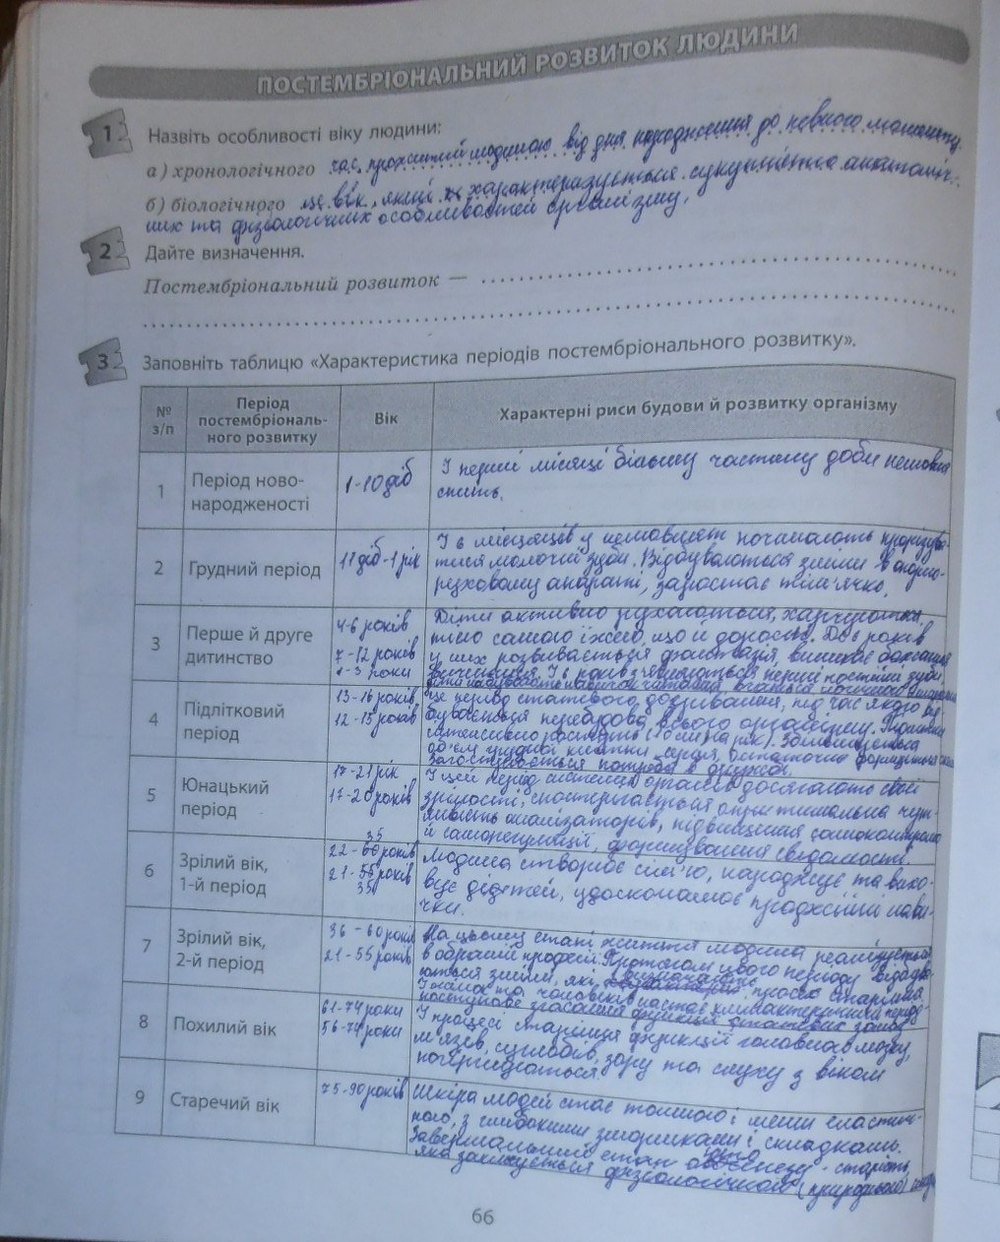 ПОСТЕМБРІОНАЛЬНИЙ РОЗВИТОК ЛЮДИНИ
1 Назвіть особливості віку людини:
а) хронологічного час, прожитий людиною від дня народження до певного моменту.
б) біологічного це вік, який характеризується сукупністю анатоміч-
них та фізіологічних особливостей організму.
2 Дайте визначення.
Постембріональний розвиток —
3 Заповніть таблицю «Характеристика періодів постембріонального розвитку».
№ з/п
Період постембріональ-
ного розвитку
Вік
Характерні риси будови й розвитку організму
1
Період ново-
народженості
1-10 діб
У перші місяці більшу частину доби немовля
спить.
2
Грудний період
11 діб-1 рік
З 6 місяців у немовляти починають прорізува-
тися молочні зуби. Відбуваються зміни в опорно-
руховому апараті, заростає тім'ячко.
3
Перше й друге
дитинство
4-6 років
7-12 років
1-3 роки
Діти активно рухаються, харчуються
тією самою їжею, що й дорослі. До 6 років
у них розвивається фантазія, виникає бажання
З 6 років з'являються перші постійні зуби,
4
Підлітковий
період
13-16 років
12-15 років
це період статевого дозрівання, під час якого від-
бувається перебудова всього організму. Підлітки
інтенсивно ростуть
об'єм грудної клітки, серця, остаточно формується
5
Юнацький
період
17-21 рік
17-20 років
У цей період системи органів досягають своєї
зрілості, спостерігається оптимальна чут-
ливість аналізаторів, підвищення самоконтролю
й саморегуляції, формування свідомості.
6
Зрілий вік,
1-й період
35
22-60 років
21-55 років
35
Людина створює сім'ю, народжує та вихо-
вує дітей, удосконалює професійні нави-
чки.
7
Зрілий вік,
2-й період
36-60 років
21-55 років
На цьому етапі життя людина реалізується
в обраній професії. Протягом цього періоду відбува-
ються зміни, які процес старіння
У жінок та чоловіків настає клімактеричний період-
поступове згасання функцій статевих залоз
8
Похилий вік
61-74 роки
56-74 роки
У процесі старіння функції головного мозку,
м'язів, суглобів, зору та слуху з віком
погіршуються.
9
Старечий вік
75-90 років
Шкіра людей стає тонкою і менш еластич-
ною, з глибокими зморшками і складками.
Завершальний етап онтогенезу - старість,
яка закінчується фізіологічною (природньою)
66